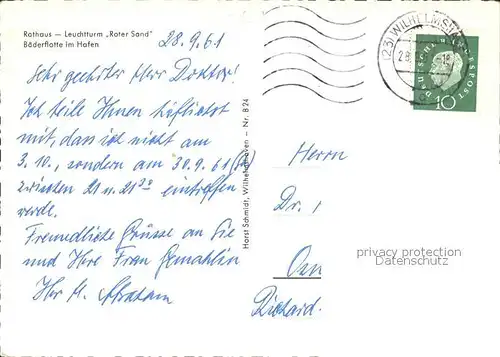 Rathaus — Leuchtturm „Roter Sand"
Bäderflotte im Hafen
28.9.61
Sehr geehrter Herr Doktor!
Ich teile Ihnen höflichst
mit, dass ich nicht am
3.10., sondern am 30.9.61 (Sa)
zwischen 21 u. 21³⁰ eintreffen
werde.
Freundliche Grüsse an Sie
und Ihre Frau Gemahlin
Ihr
Horst Schmidt, Wilhelmshaven — Nr. B 24
(23) WILHELMSHA
DEUTSCHE BUNDESPOST
10
Herrn
Dr.
privacy protection
Datenschutz
Richard-